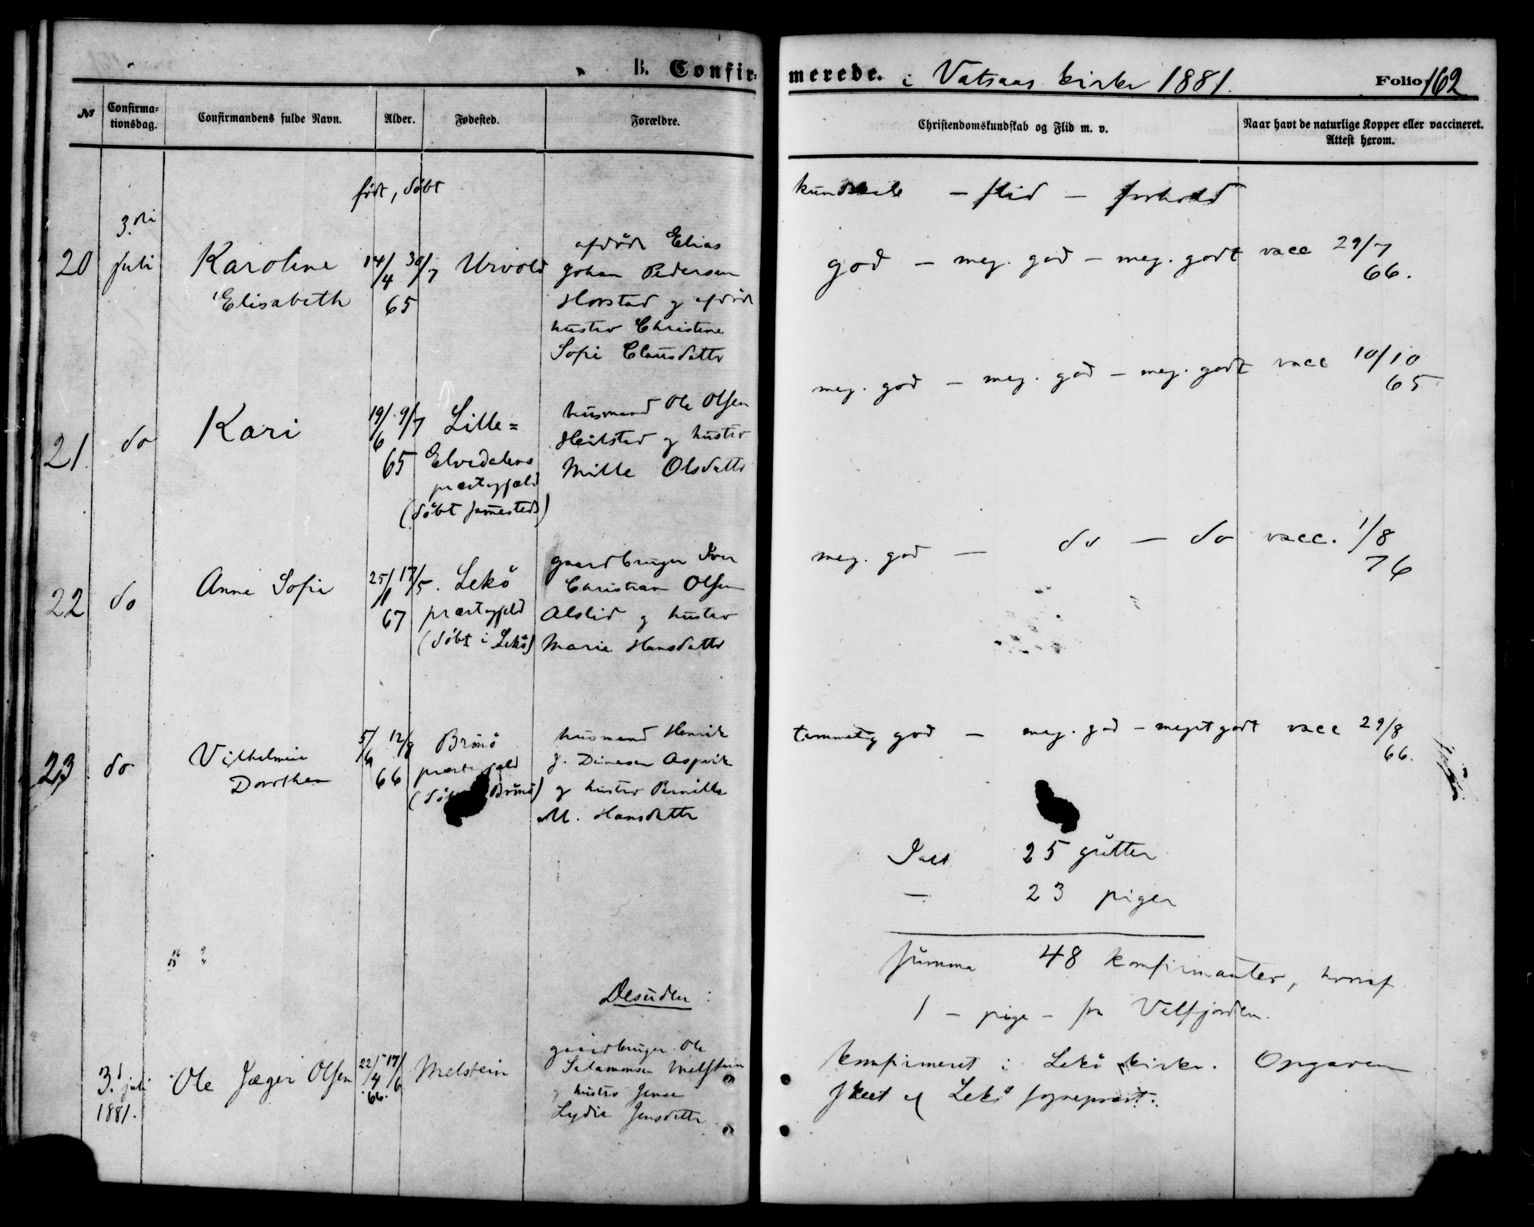 B. Confirmerede. i Vatsaas kirke 1881. Folio 162
No
Confirmationsdag.
Confirmandens fulde Navn.
Alder.
Fødested.
Forældre.
Christendomskundskab og Flid m. v.
Naar havt de naturlige Kopper eller vaccineret.
Attest herom.
født, døbt
kundskab — flid — forhold
20
3.die
juli
Karoline
Elisabeth
14/4 30/7
65
Urvold
afdøde Elias
Johan Pedersen
Horstad og afdøde
hustro Christine
Sofie Clausdatter
god — meg. god — meg. godt vacc 29/7
66.
21.
do
Kari
19/6 9/7
65
Lille=
Elvedalens
præstegjeld
(døbt sammesteds)
husmand Ole Olsen
og hustro
Mille Olsdatter
meg. god — meg. god — meg. godt vacc 10/10
65
22
do
Anne Sofie
25/1 17/5.
67
Lekø
præstegjeld
(døbt i Lekø)
gaardbruger Iver
Christian Olsen
Alslid og hustro
Maria Hansdatter
meg. god — do — do vacc. 1/8
76
23
do
Vilhelmine
Dorothea
5/6 12/8
66
Brønø
præstegjeld
(døbt Brønø)
husmand Henrik
J. Dinesen Aspvik
og hustro Pernille
M. Hansdatter
temmelig god — meg. god — meget godt vacc 29/8
66.
Ialt 25 gutter
— 23 piger
Summa 48 konfirmanter, hvoraf
1 — pige — fra Velfjorden.
Desuden:
3. juli
1881.
Ole Jæger Olsen
22/4 17/6
66.
Melstein
gaardbruger Ole
Salamonsen Melstein
og hustro Jense
Lydie Jensdatter
konfirmeret i Lekø kirke. Opgaven
skeet af Lekø sognepræst.